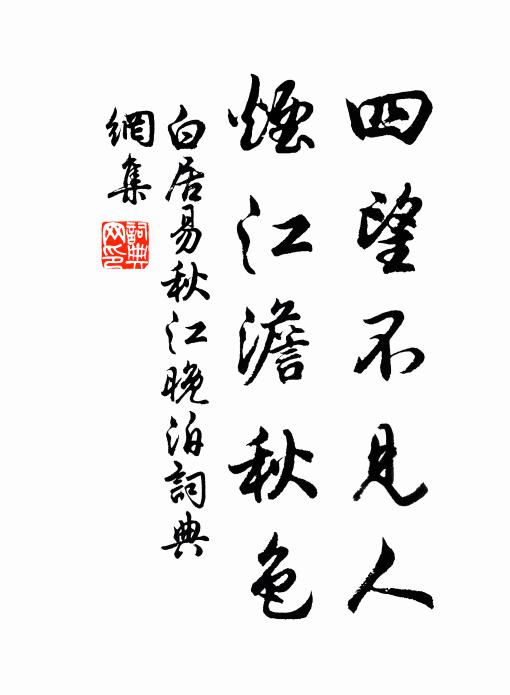 四望不見人
煙江澹秋色
白居易秋江晚泊詞典
網集
詞典
网印